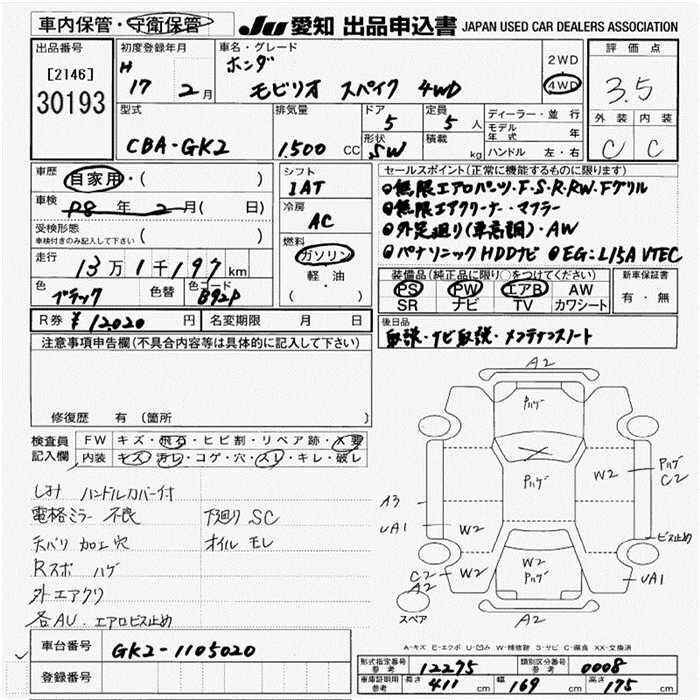 車内保管・守衛保管 JU 愛知 出品申込書 JAPAN USED CAR DEALERS ASSOCIATION
出品番号
[2146]
30193
初度登録年月
H
17 2月
車名・グレード
ホンダ
モビリオ スパイク 4WD
2WD
4WD
評価点
3.5
外装 内装
C C
型式
CBA-GK2
排気量
1,500 CC
ドア
5
形状
SW
定員
5 人
積載
kg
ディーラー・並行
モデル年式 年
ハンドル 左・右
車歴
自家用・( )
車検
P8 年 2月( 日)
受検形態
車検付きのみ記入して下さい ( )
走行
13万1千197km
色
ブラック
色替
色コード
B92P
シフト
1AT
冷房
AC
燃料
ガソリン
軽・油
( )
R券 ¥12,020 円
名変期限 月 日
セールスポイント(正常に機能するものに限ります)
◎無限エアロパーツ・F・S・R・RW・Fグリル
◎無限エアクリーナー・マフラー
◎外足廻り(車高調)・AW
◎パナソニックHDDナビ ◎EG:L15A VTEC
装備品(純正品に限り○をつけてください)
PS PW エアB AW
SR ナビ TV カワシート
新車保証書
有・無
後日品
取説・ナビ取説・メンテナンスノート
注意事項申告欄(不具合内容等は具体的に記入して下さい)
修復歴 有(箇所
検査員記入欄
FW キズ・飛石・ヒビ割・リペア跡・X要
内装 キズ・汚レ・コゲ・穴・スレ・キレ・破レ
しみ ハンドルカバー付
電格ミラー不良 下廻りSC
天バリ加工穴 オイルモレ
Rスポ ハゲ
外エアクリ
各AU. エアロビス止め
A2
Pハゲ
Pハゲ
W2
Pハゲ
C2
A3
UA1
W2
ビス止め
W2
Pハゲ
C2
A2
W2
UA1
A2
スペア
A-キズ E-エクボ U-凹み W-補修跡 S-サビ C-腐食 XX-交換済
車台番号 GK2-1105020
登録番号
形式指定番号
参考 12275
類別区分番号
参考 0008
車庫証明用
参考 長さ 411 cm 幅 169 cm 高さ 175 cm